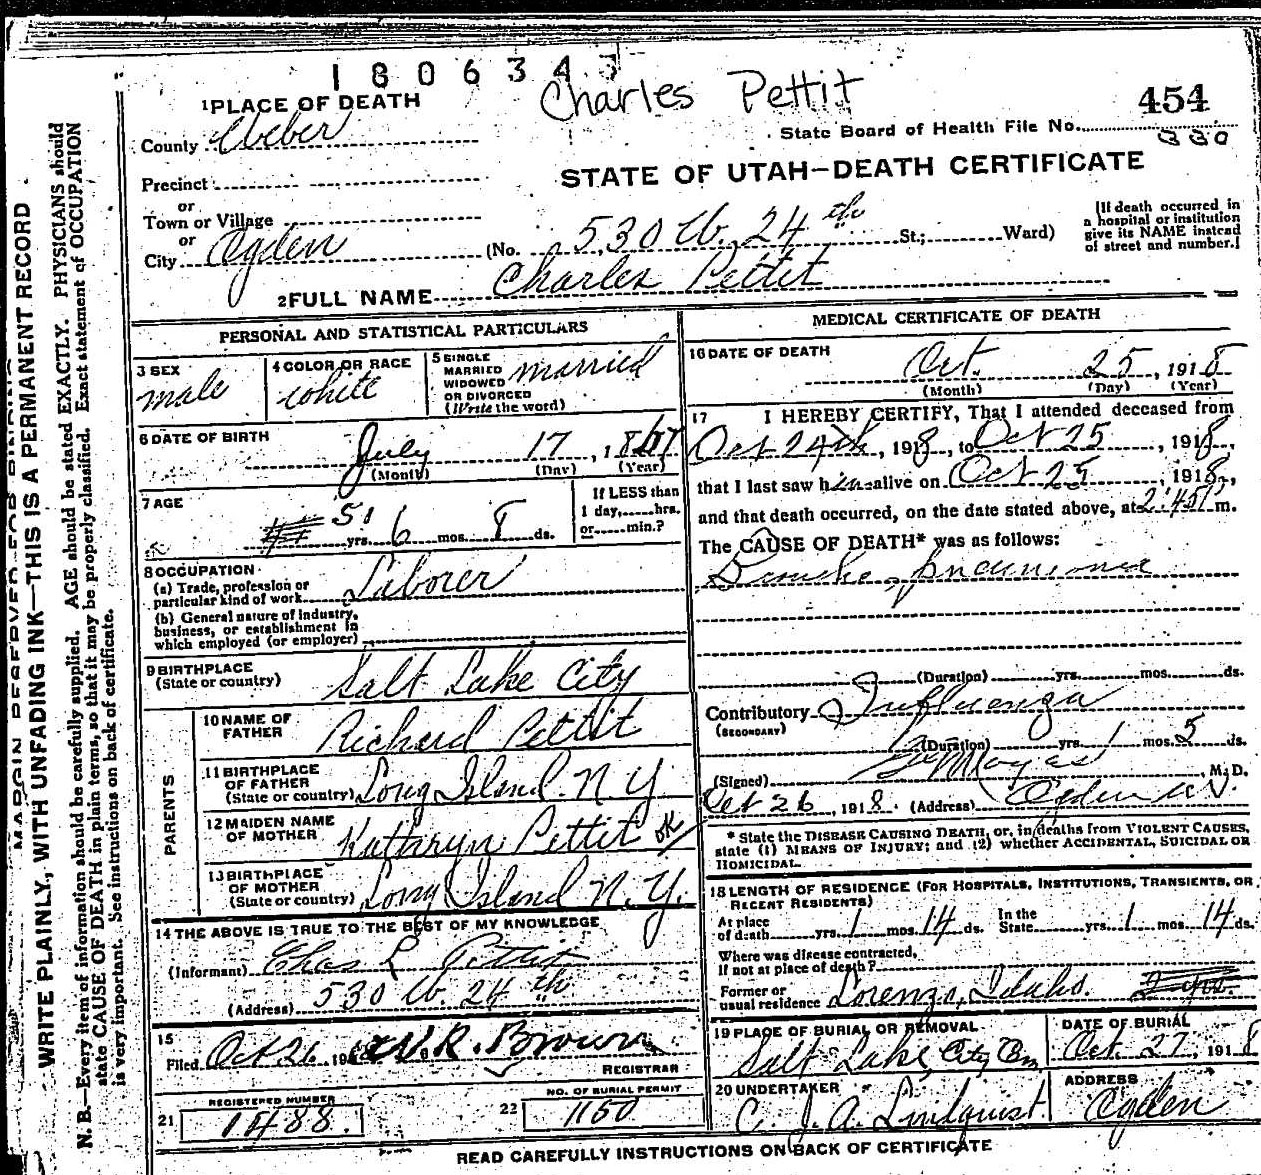 1806343
Charles Pettit
454
1 PLACE OF DEATH
State Board of Health File No.
330
County Weber
STATE OF UTAH—DEATH CERTIFICATE
Precinct
or
Town or Village
or
City Ogden (No. 530 W. 24th St.; Ward)
(If death occurred in
a hospital or institution
give its NAME instead
of street and number.)
2 FULL NAME Charles Pettit
PERSONAL AND STATISTICAL PARTICULARS
3 SEX
male
4 COLOR OR RACE
white
5 SINGLE
MARRIED
WIDOWED
OR DIVORCED
(Write the word)
married
6 DATE OF BIRTH
July 17, 1867
(Month) (Day) (Year)
7 AGE
51 yrs. 6 mos. 8 ds.
If LESS than
1 day, hrs.
or min.?
8 OCCUPATION
(a) Trade, profession or
particular kind of work Laborer
(b) General nature of industry,
business, or establishment in
which employed (or employer)
9 BIRTHPLACE
(State or country) Salt Lake City
PARENTS
10 NAME OF
FATHER Richard Pettit
11 BIRTHPLACE
OF FATHER
(State or country) Long Island N Y.
12 MAIDEN NAME
OF MOTHER Kathryn Pettit OK
13 BIRTHPLACE
OF MOTHER
(State or country) Long Island N. Y.
14 THE ABOVE IS TRUE TO THE BEST OF MY KNOWLEDGE
(Informant) Chas L Pettit
(Address) 530 W. 24th
15
Filed Oct 26 191 W.R. Brown
REGISTRAR
REGISTERED NUMBER
21 1488
NO. OF BURIAL PERMIT
22 1150
MEDICAL CERTIFICATE OF DEATH
16 DATE OF DEATH
Oct. 25, 1918
(Month) (Day) (Year)
17 I HEREBY CERTIFY, That I attended deceased from
Oct 24th, 1918, to Oct 25, 1918,
that I last saw him alive on Oct 25, 1918,
and that death occurred, on the date stated above, at 2:45 P m.
The CAUSE OF DEATH* was as follows:
Broncho pneumonia
(Duration) yrs. mos. ds.
Contributory Influenza
(SECONDARY)
(Duration) yrs. 1 mos. 5 ds.
(Signed) M.D.
Oct 26, 1918. (Address) Ogden
* State the DISEASE CAUSING DEATH, or, in deaths from VIOLENT CAUSES,
state (1) MEANS OF INJURY; and (2) whether ACCIDENTAL, SUICIDAL OR
HOMICIDAL.
18 LENGTH OF RESIDENCE (FOR HOSPITALS, INSTITUTIONS, TRANSIENTS, OR
RECENT RESIDENTS)
At place
of death yrs. 1 mos. 14 ds. In the
State yrs. 1 mos. 14 ds.
Where was disease contracted,
If not at place of death?
Former or
usual residence Lorenzo, Idaho.
19 PLACE OF BURIAL OR REMOVAL
Salt Lake City
DATE OF BURIAL
Oct. 27, 1918
20 UNDERTAKER
C. J. A. Lindquist
ADDRESS
Ogden
READ CAREFULLY INSTRUCTIONS ON BACK OF CERTIFICATE
MARGIN RESERVED FOR BINDING
WRITE PLAINLY, WITH UNFADING INK—THIS IS A PERMANENT RECORD
N. B.—Every item of information should be carefully supplied. AGE should be stated EXACTLY. PHYSICIANS should
state CAUSE OF DEATH in plain terms, so that it may be properly classified. Exact statement of OCCUPATION
is very important. See instructions on back of certificate.